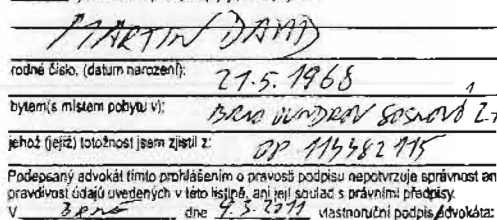 MARTIN DAVID
rodné číslo, (datum narození): 21.5.1968
bytem(s místem pobytu v): BRNO
jehož (její) totožnost jsem zjistil z: OP 113382115
Podepsaný advokát tímto prohlášením o pravosti podpisu nepotvrzuje správnost an
pravdivost údajů uvedených v této listině, ani její soulad s právními předpisy.
V BRNĚ dne 9.5.2011 vlastnoruční podpis advokáta: